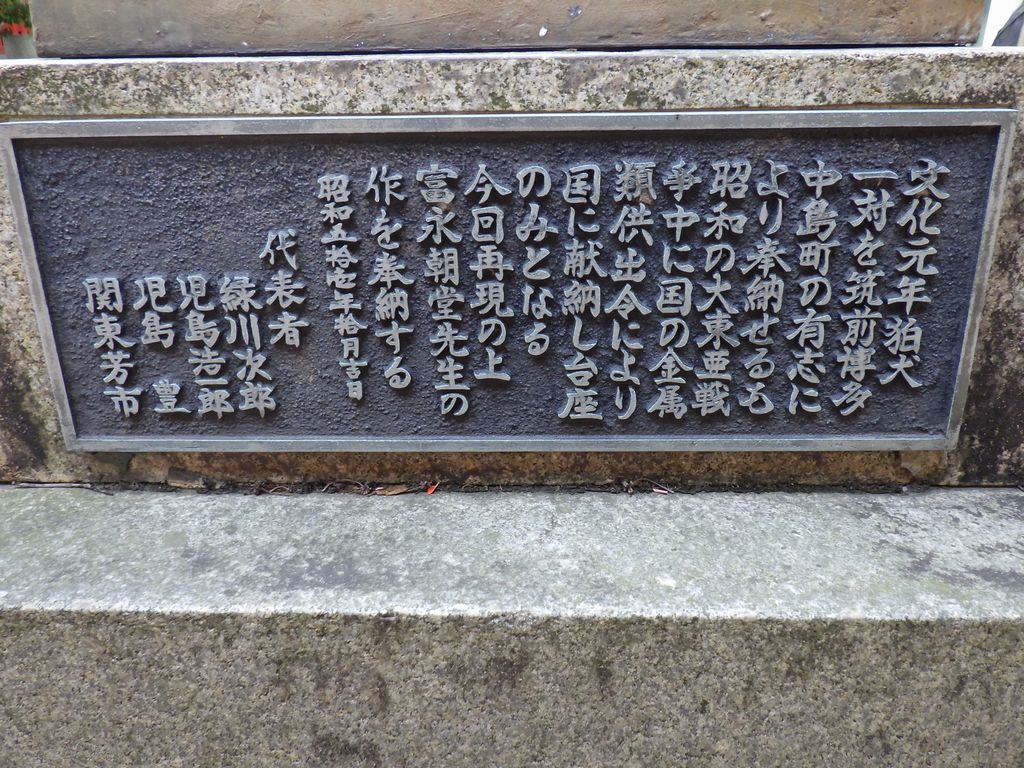 文化元年狛犬
一対を筑前博多
中島町の有志に
より奉納せるも
昭和の大東亜戦
争中に国の金属
類供出令により
国に献納し台座
のみとなる
今回再現の上
富永朝堂先生の
作を奉納する
昭和五拾壱年拾月吉日
代表者
緑川次郎
児島浩一郎
児島 豊
関東芳市